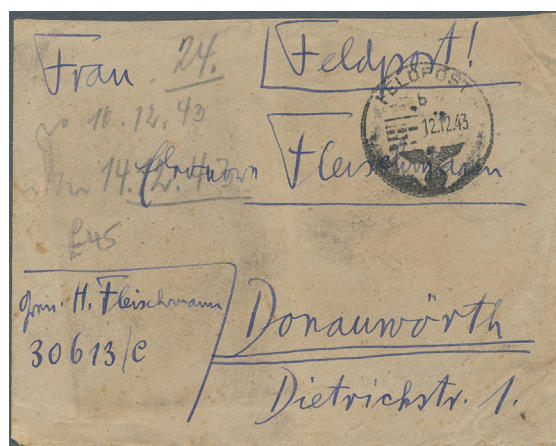 Frau 24. Feldpost!
FELDPOST
b
12.12.43
10.12.43
14.12.43 Eleonore Fleischmann
Gren. H. Fleischmann
30613/C
Donauwörth
Dietrichstr. 1.